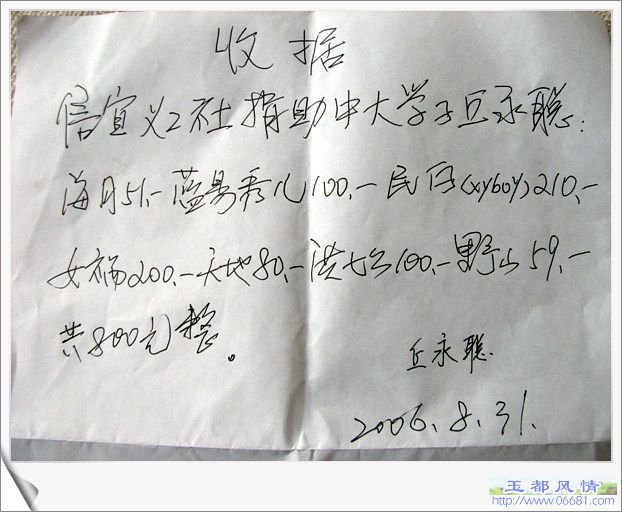 收据
信宜义工社捐助中大学子丘永聪:
海月51,-蓝易秀儿100,-民仔(xyboy)210,-
女祸200,-天地80,-洪七公100,-野山59,-
共800元整。
丘永聪.
2006.8.31.
玉都风情
http://www.06681.com